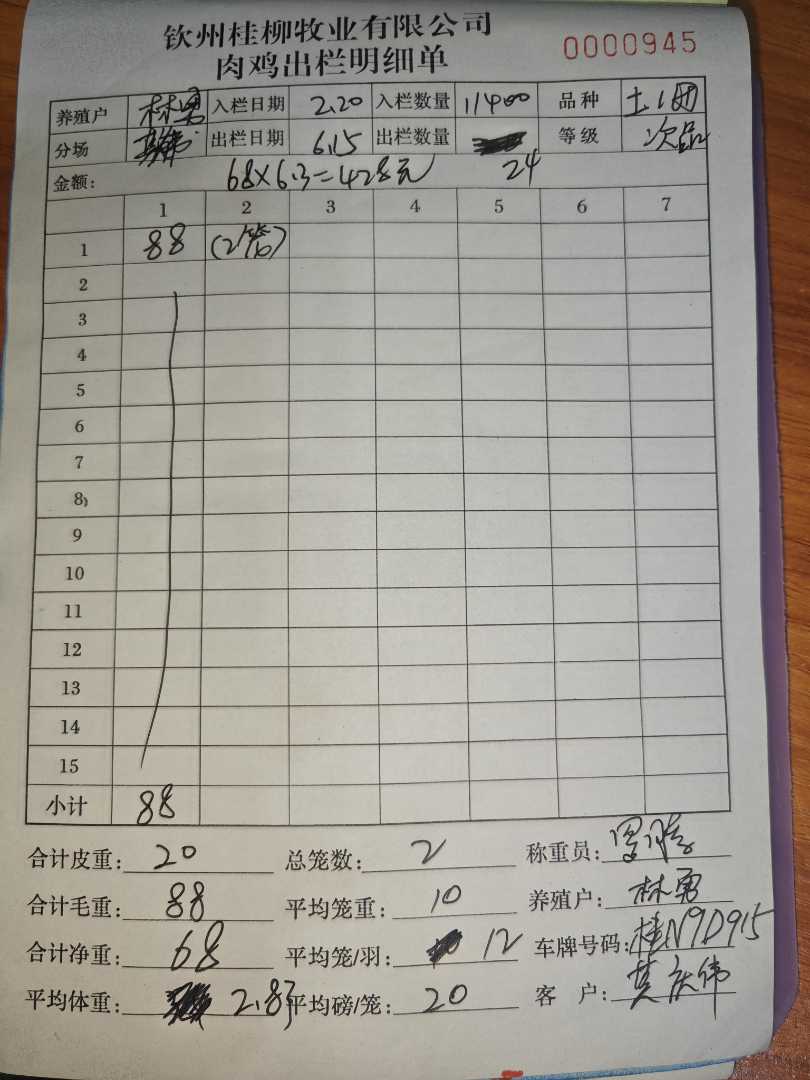 钦州桂柳牧业有限公司
肉鸡出栏明细单 0000945
养殖户 林勇 入栏日期 2.20 入栏数量 11400 品种 土1
分场 出栏日期 6.15 出栏数量 24 等级 次品
金额: 68×6.3=428元
1 2 3 4 5 6 7
1 88 (2笼)
2
3
4
5
6
7
8
9
10
11
12
13
14
15
小计 88
合计皮重: 20 总笼数: 2 称重员:
合计毛重: 88 平均笼重: 10 养殖户: 林勇
合计净重: 68 平均笼/羽: 12 车牌号码: 桂N9D915
平均体重: 2.83 平均磅/笼: 20 客 户: 莫庆伟